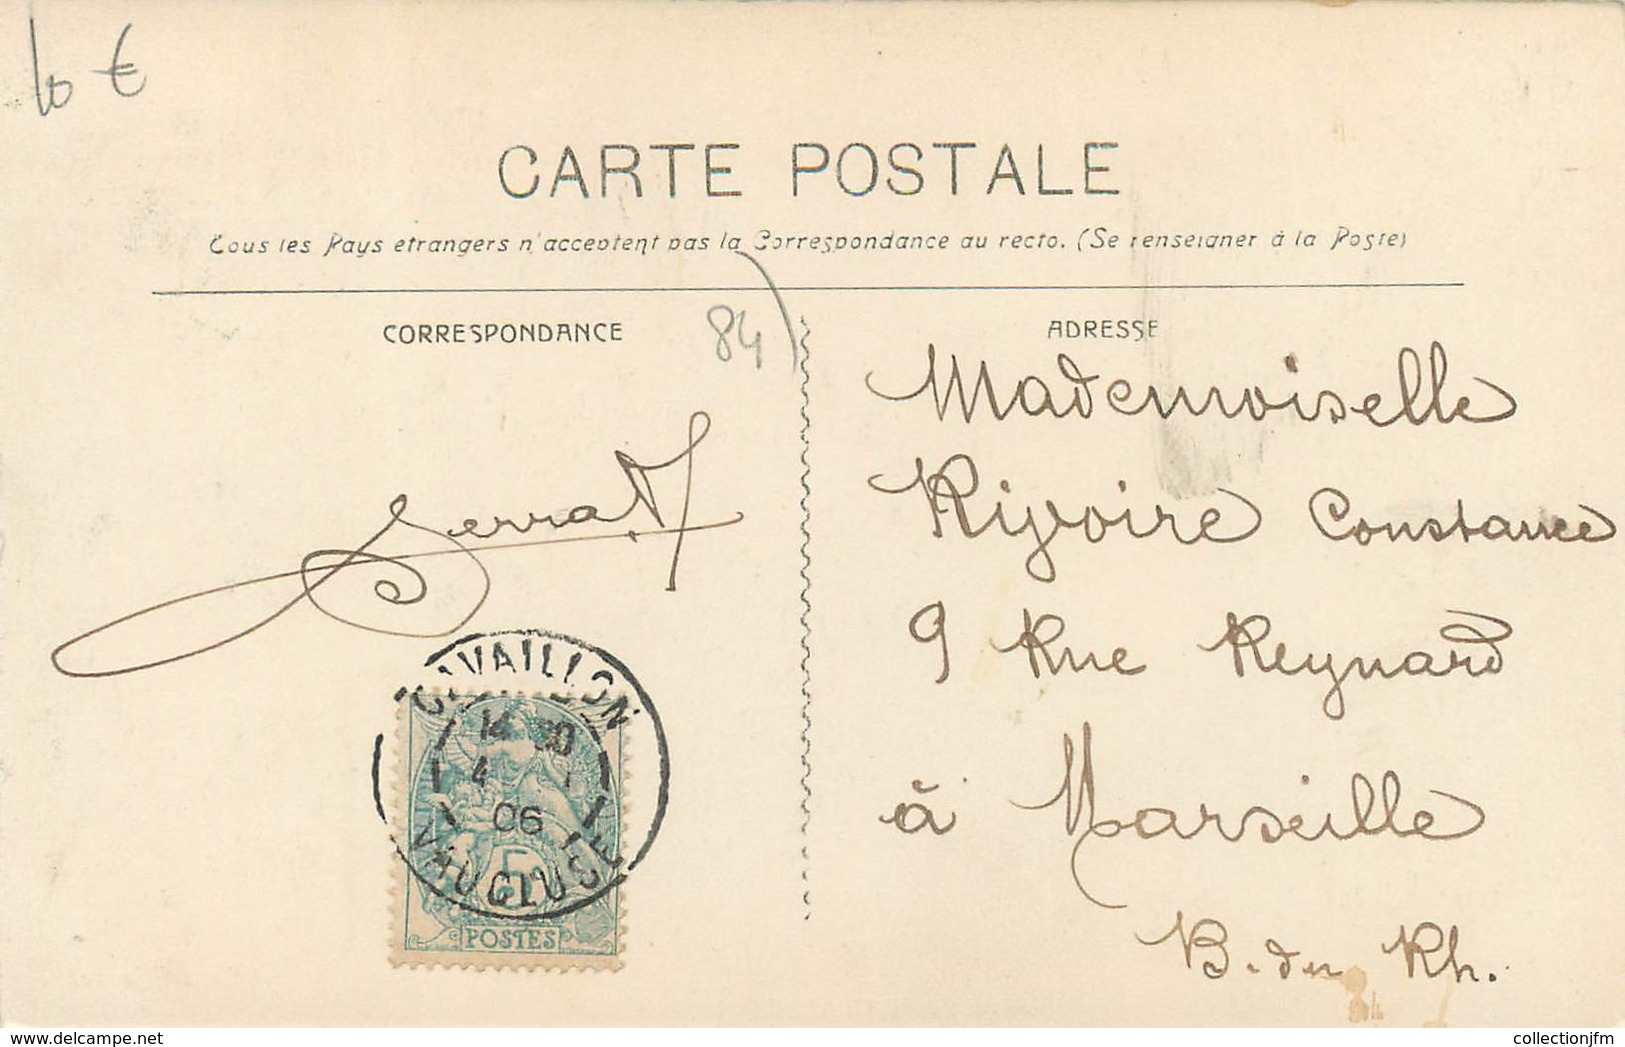 10 €
CARTE POSTALE
Tous les Pays etrangers n'acceptent pas la Correspondance au recto. (Se renseigner à la Poste)
CORRESPONDANCE
84
ADRESSE
Mademoiselle
Rigoire Constance
9 Rue Reynard
à Marseille
B. du Rh.
CAVAILLON
14 30
4
06
VAUCLUSE
5c
POSTES
www.delcampe.net
collectionjfm